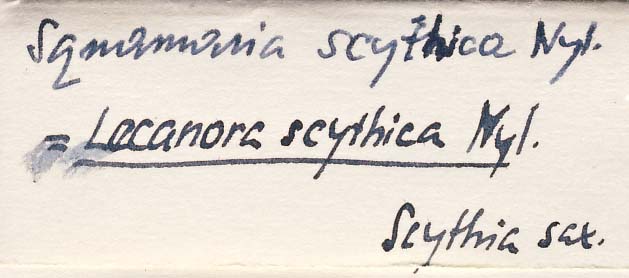 Squamaria scythica Nyl.
= Lecanora scythica Nyl.
Scythia sax.